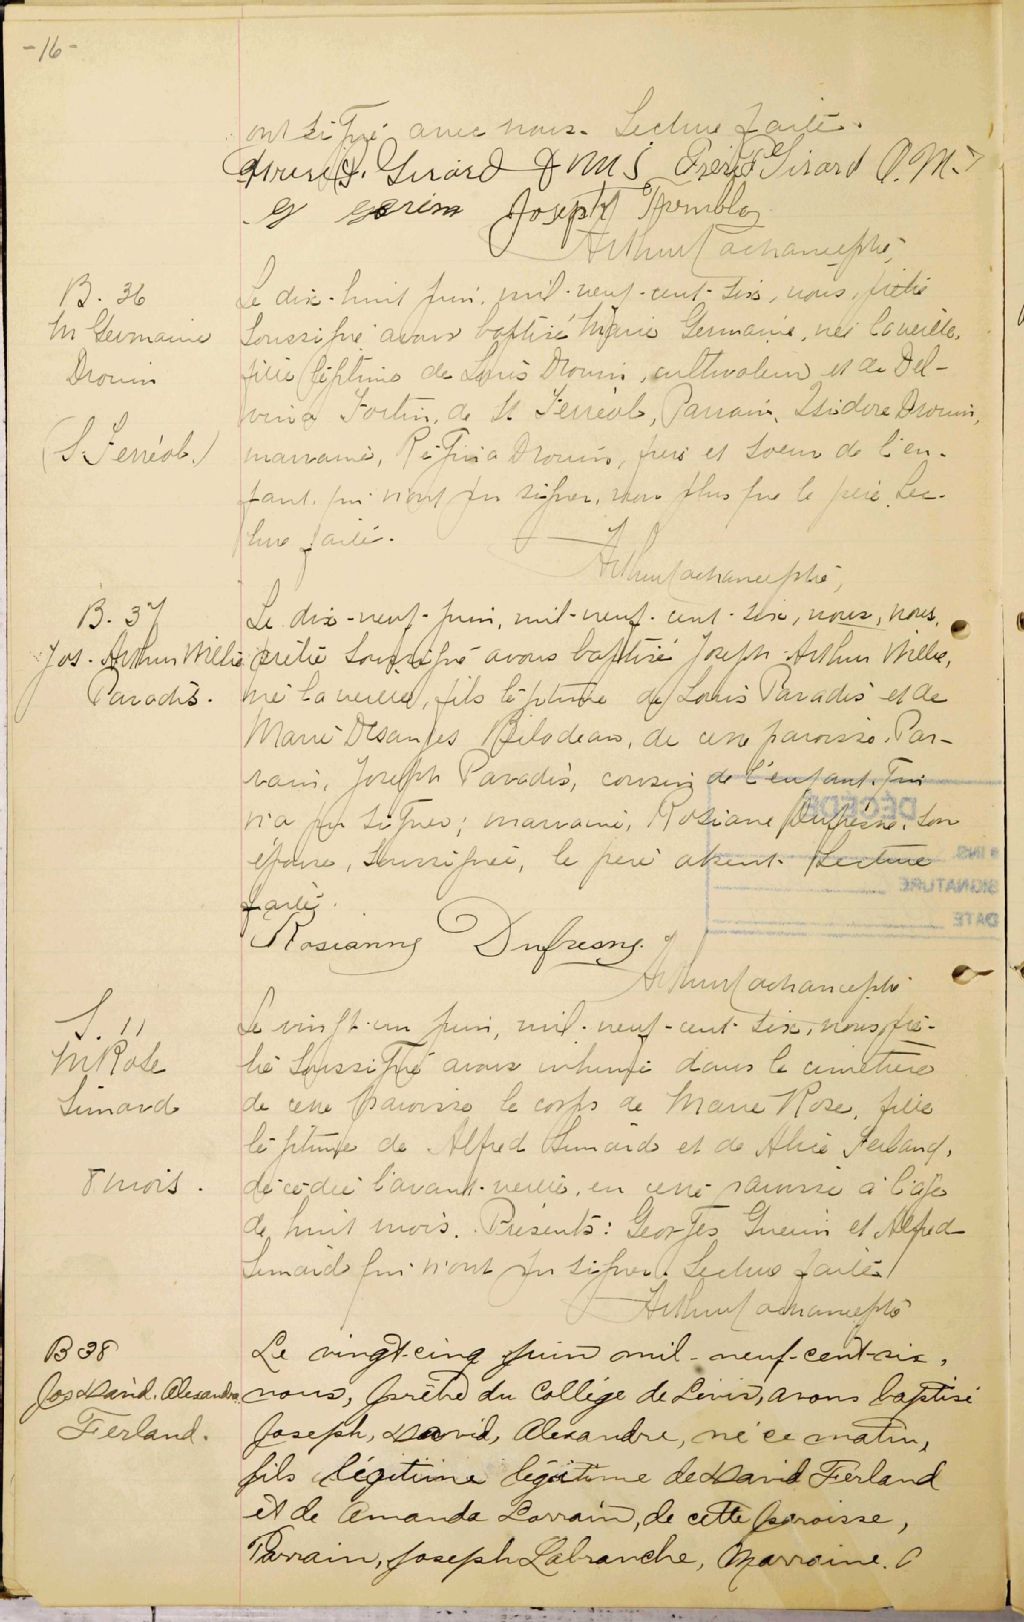 -16-
ont signé avec nous. Lecture faite.
Girard O M I Frère Girard O. M. I
Joseph Tremblay
Arthur Lachance ptre
B. 36
M Germaine
Drouin
(S. Ferréol.)
Le dix-huit juin, mil-neuf-cent-six, nous, prêtre
soussigné avons baptisé Marie Germaine, née la veille,
fille légitime de Louis Drouin, cultivateur et de Del-
vina Fortin, de St Ferréol, Parrain, Isidore Drouin,
marraine, Régina Drouin, frère et soeur de l'en-
fant qui n'ont pu signer, non plus que le père. Lec-
ture faite.
Arthur Lachance ptre,
B. 37
Jos-Arthur Willie
Paradis.
Le dix-neuf-juin, mil-neuf-cent-six, nous, nous,
prêtre soussigné avons baptisé Joseph Arthur Willie,
né la veille, fils légitime de Louis Paradis et de
Marie Desanges Bilodeau, de cette paroisse. Par-
rain, Joseph Paradis, cousin de l'enfant. qui
n'a pu signer; marraine, Rosiane Dufresne, son
épouse, soussignée, le père absent. Lecture
faite.
DÉCÉDÉ
INS.
SIGNATURE
DATE
Rosianne Dufresne.
Arthur Lachance ptre
S. 11
M Rose
Simard
8 mois.
Le vingt-un juin, mil-neuf-cent-six, nous prê-
tre soussigné avons inhumé dans le cimetière
de cette paroisse le corps de Marie Rose, fille
légitime de Alfred Simard et de Alice Ferland,
décédée l'avant-veille, en cette paroisse à l'âge
de huit mois. Présents: Georges Guerin et Alfred
Simard qui n'ont pu signer. Lecture faite
Arthur Lachance ptre
B 38
Jos David. Alexandre
Ferland.
Le vingt-cinq juin mil-neuf-cent-six,
nous, prêtre du Collége de Lévis, avons baptisé
Joseph, David, Alexandre, né ce matin,
fils légitime légitime de David Ferland
et de Amanda Lorrain, de cette paroisse,
Parrain, Joseph Labranche, Marraine.